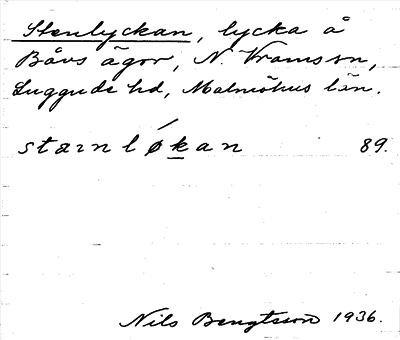 Stenlyckan, lycka å
Båvs ägor, N. Vrams sn,
Luggude hd, Malmöhus län.
stæinlǿkan 89.
Nils Bengtsson 1936.